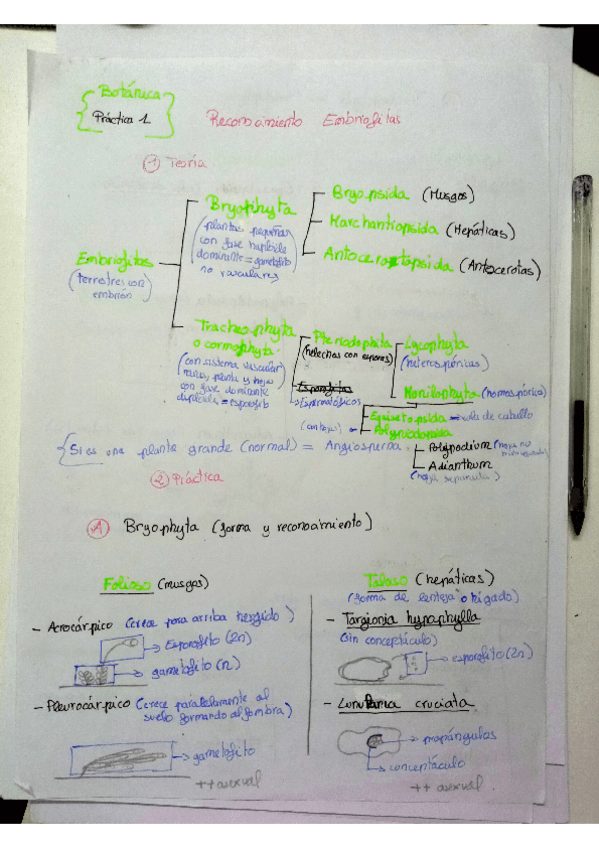 Botánica
Práctica 1
Reconocimiento Embriofitas
① Teoría
Embriofitas
(terrestres con embrión)
Bryophyta
(plantas pequeñas
con fase haploide
dominante = gametofito
no vasculares)
Bryopsida (Musgos)
Marchantiopsida (Hepáticas)
Antocerotopsida (Antocerotas)
Tracheophyta
o cormophyta
(con sistema vascular)
con fase dominante
diploide = esporofito
Pteridophyta
(helechos con esporas)
Esporofitas
→ Espermatofitas
Lycophyta
(heterospóricas)
Monilophyta (homospórica)
(con hojas)
Equisetopsida → cola de caballo
Polypodiopsida
Polypodium (hoja no
Adianthum
(hoja separada)
{Si es una planta grande (normal) = Angiosperma
② Práctica
Ⓐ Bryophyta (forma y reconocimiento)
Folioso (musgos)
- Acrocárpico (crece para arriba herguido)
→ Esporofito (2n)
→ gametofito (n)
- Pleurocárpico (crece paralelamente al
suelo formando alfombra)
→ gametofito
++ asexual
Taloso (hepáticas)
(forma de lenteja o hígado)
- Targionia hypophylla
(sin conceptáculo)
→ esporofito (2n)
- Lunularia cruciata
→ propángulos
→ conceptáculo
++ asexual